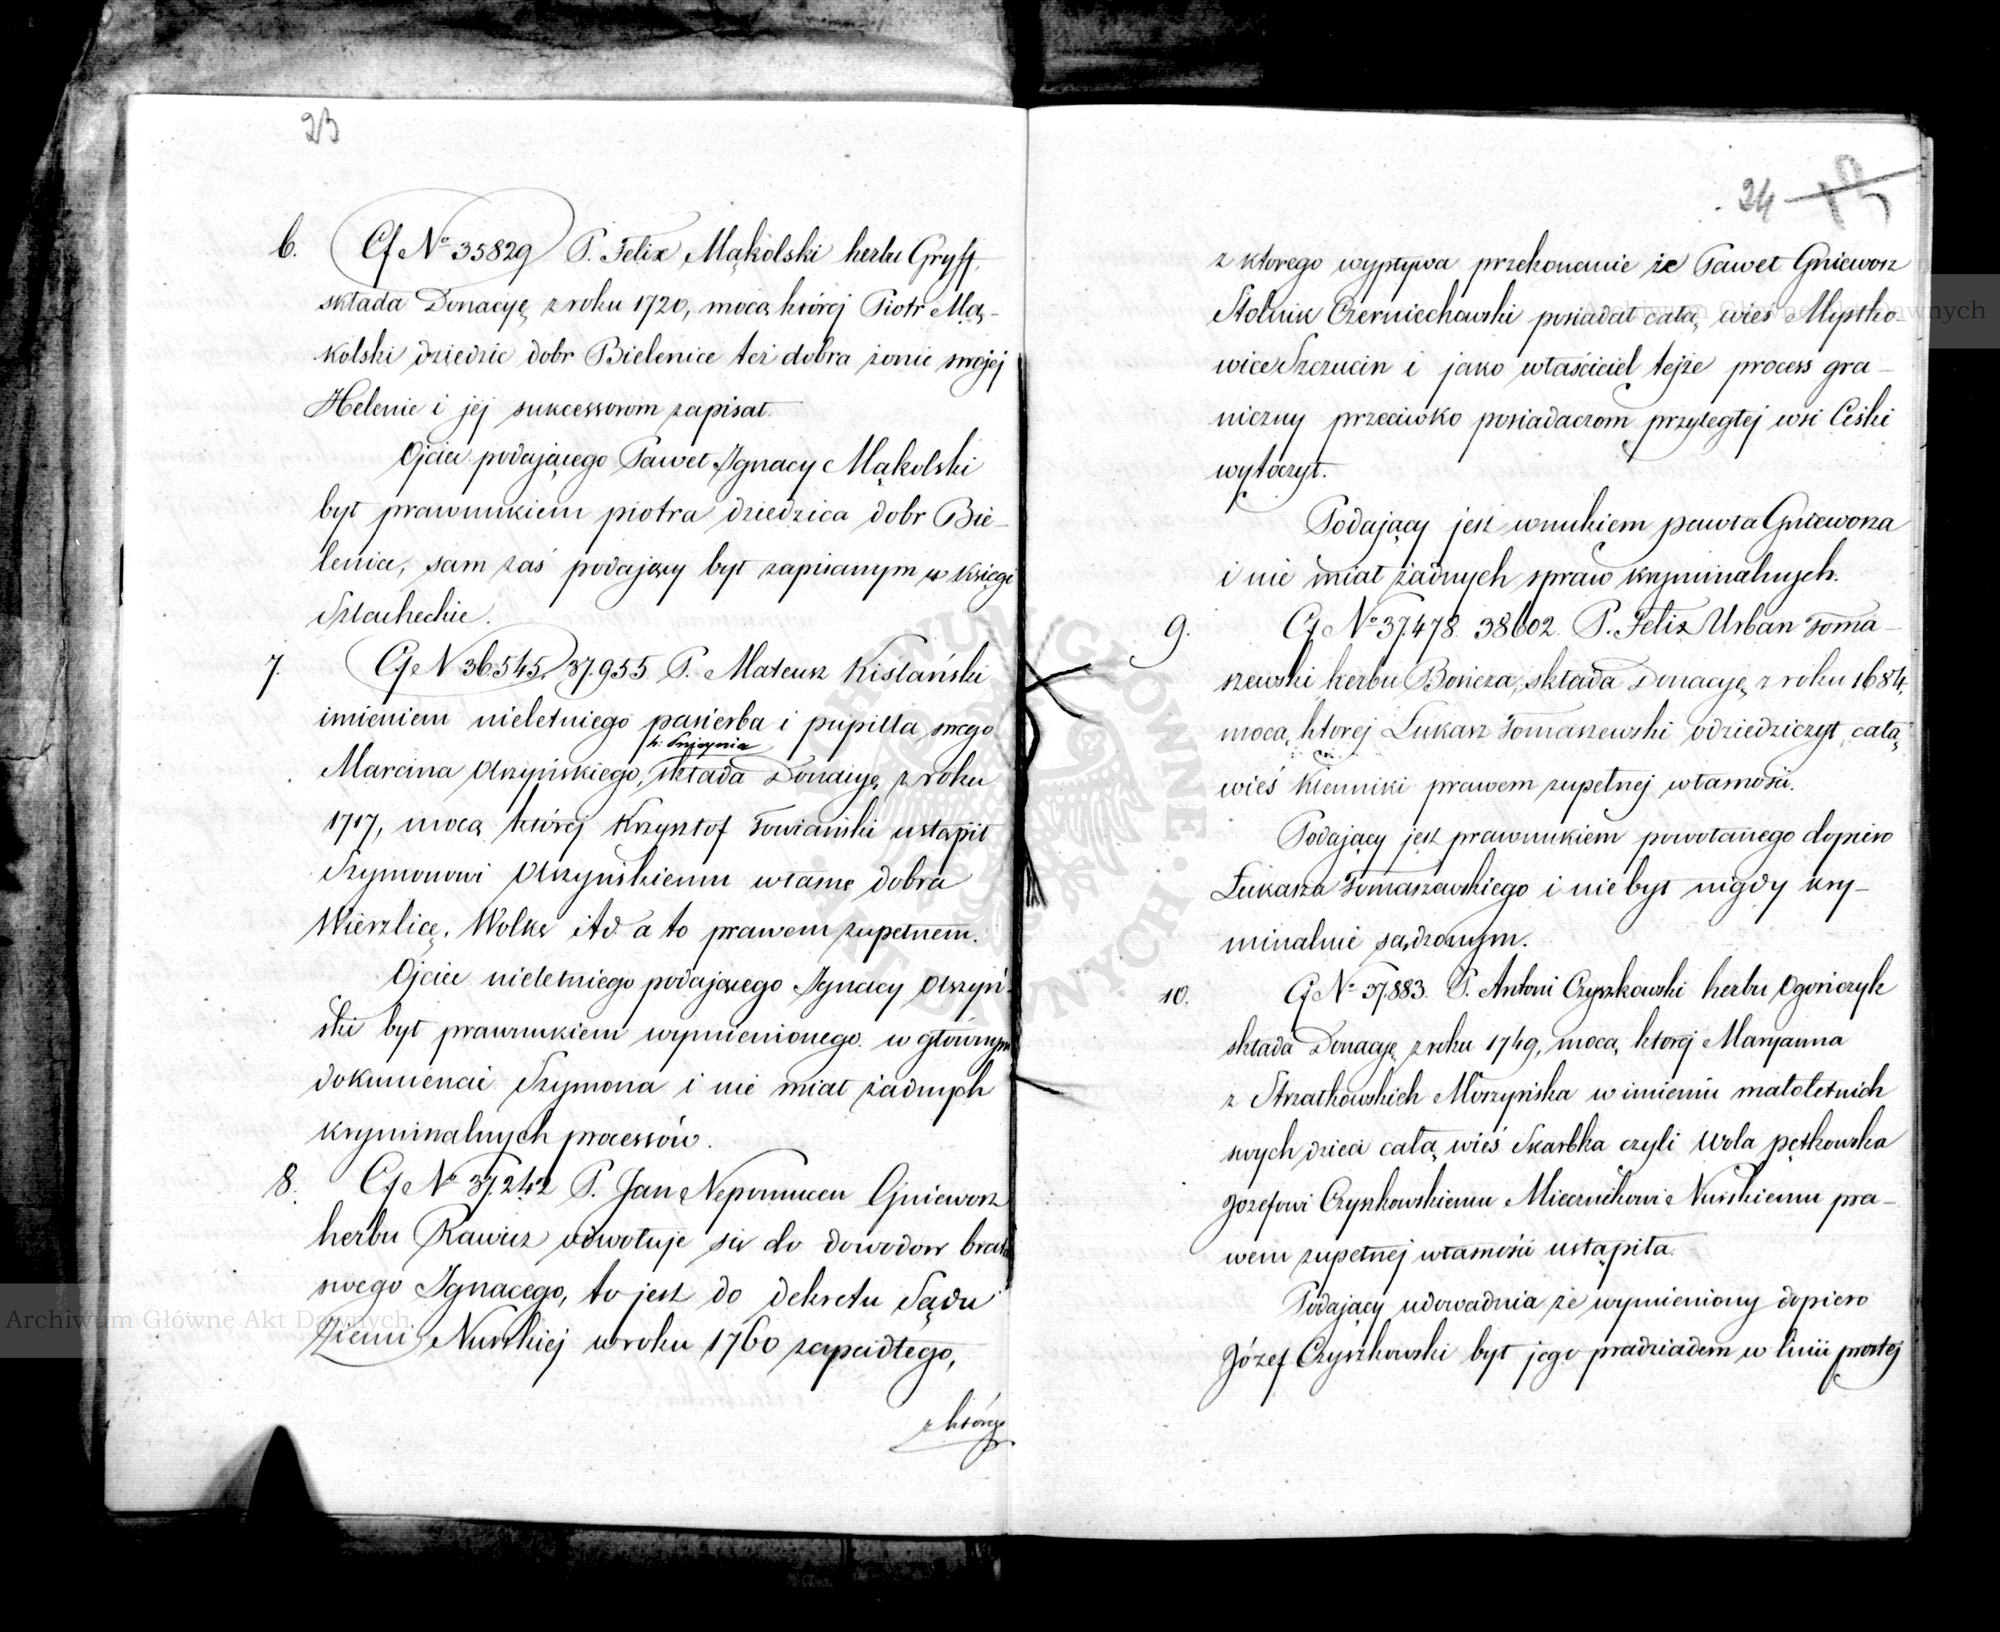 23
6. Cf N° 35829 P. Felix Mąkolski herbu Gryff,
składa Donacyę z roku 1720, mocą której Piotr Mą-
kolski dziedzic dobr Bielenice też dobra żonie swojej
Helenie i jej sukcessorom zapisał.
Ojciec podającego Paweł Ignacy Mąkolski
był prawnukiem piotra dziedzica dobr Bie-
lenice, sam zaś podający był zapisanym w Księgi
Szlacheckie.
7. Cf N 36.545, 37.955 P. Mateusz Kislański
imieniem nieletniego pasierba i pupilla swego
Marcina Olszyńskiego, składa Donacyę z roku
1717, mocą której Krzysztof Towiański ustąpił
Szymonowi Olszyńskiemu własne dobra
Wierzlicę, Wolkę itd a to prawem zupełnem.
Ojciec nieletniego podającego Ignacy Olszyń-
ski był prawnukiem wymienionego w głównym
dokumencie Szymona i nie miał żadnych
kryminalnych processów.
8. Cf N° 37.242 P. Jan Nepomucen Gniewosz
herbu Rawicz odwołuje się do dowodow brata
swego Ignacego, to jest do dekretu Sądu
Ziemi Nurskiej w roku 1760 zapadłego,
z którego
24
z ktorego wypływa przekonanie że Paweł Gniewosz
Stolnik Czerniechowski posiadał całą wieś Mystko-
wice Szczucin i jako właściciel tejże process gra-
niczny przeciwko posiadaczom przyległej wsi Ceski
wytoczył.
Podający jest wnukiem pawła Gniewosza
i nie miał żadnych spraw kryminalnych.
9. Cf N° 37.478. 38602. P. Felix Urban Toma-
szewski herbu Bończa, składa Donacyę z roku 1684,
mocą ktorej Łukasz Tomaszewski odziedziczył całą
wieś Klenniki prawem zupełnej własności.
Podający jest prawnukiem powołanego dopiero
Łukasza Tomaszewskiego i nie był nigdy kry-
minalnie sądzonym.
10. Cf N° 37.883. P. Antoni Czyszkowski herbu Ogończyk
składa Donacyę z roku 1749, mocą ktorej Maryanna
z Strzałkowskich Mirzyńska w imieniu małoletnich
swych dzieci całą wieś Skarbka czyli Wola pętkowska
Jozefowi Czyszkowskiemu Miecznikowi Nurskiemu pra-
wem zupełnej własności ustąpiła.
Podający udowadnia że wymieniony dopiero
Józef Czyszkowski był jego pradziadem w linii prostej
Archiwum Główne Akt Dawnych
Archiwum Główne Akt Dawnych
ARCHIWUM GŁÓWNE AKT DAWNYCH